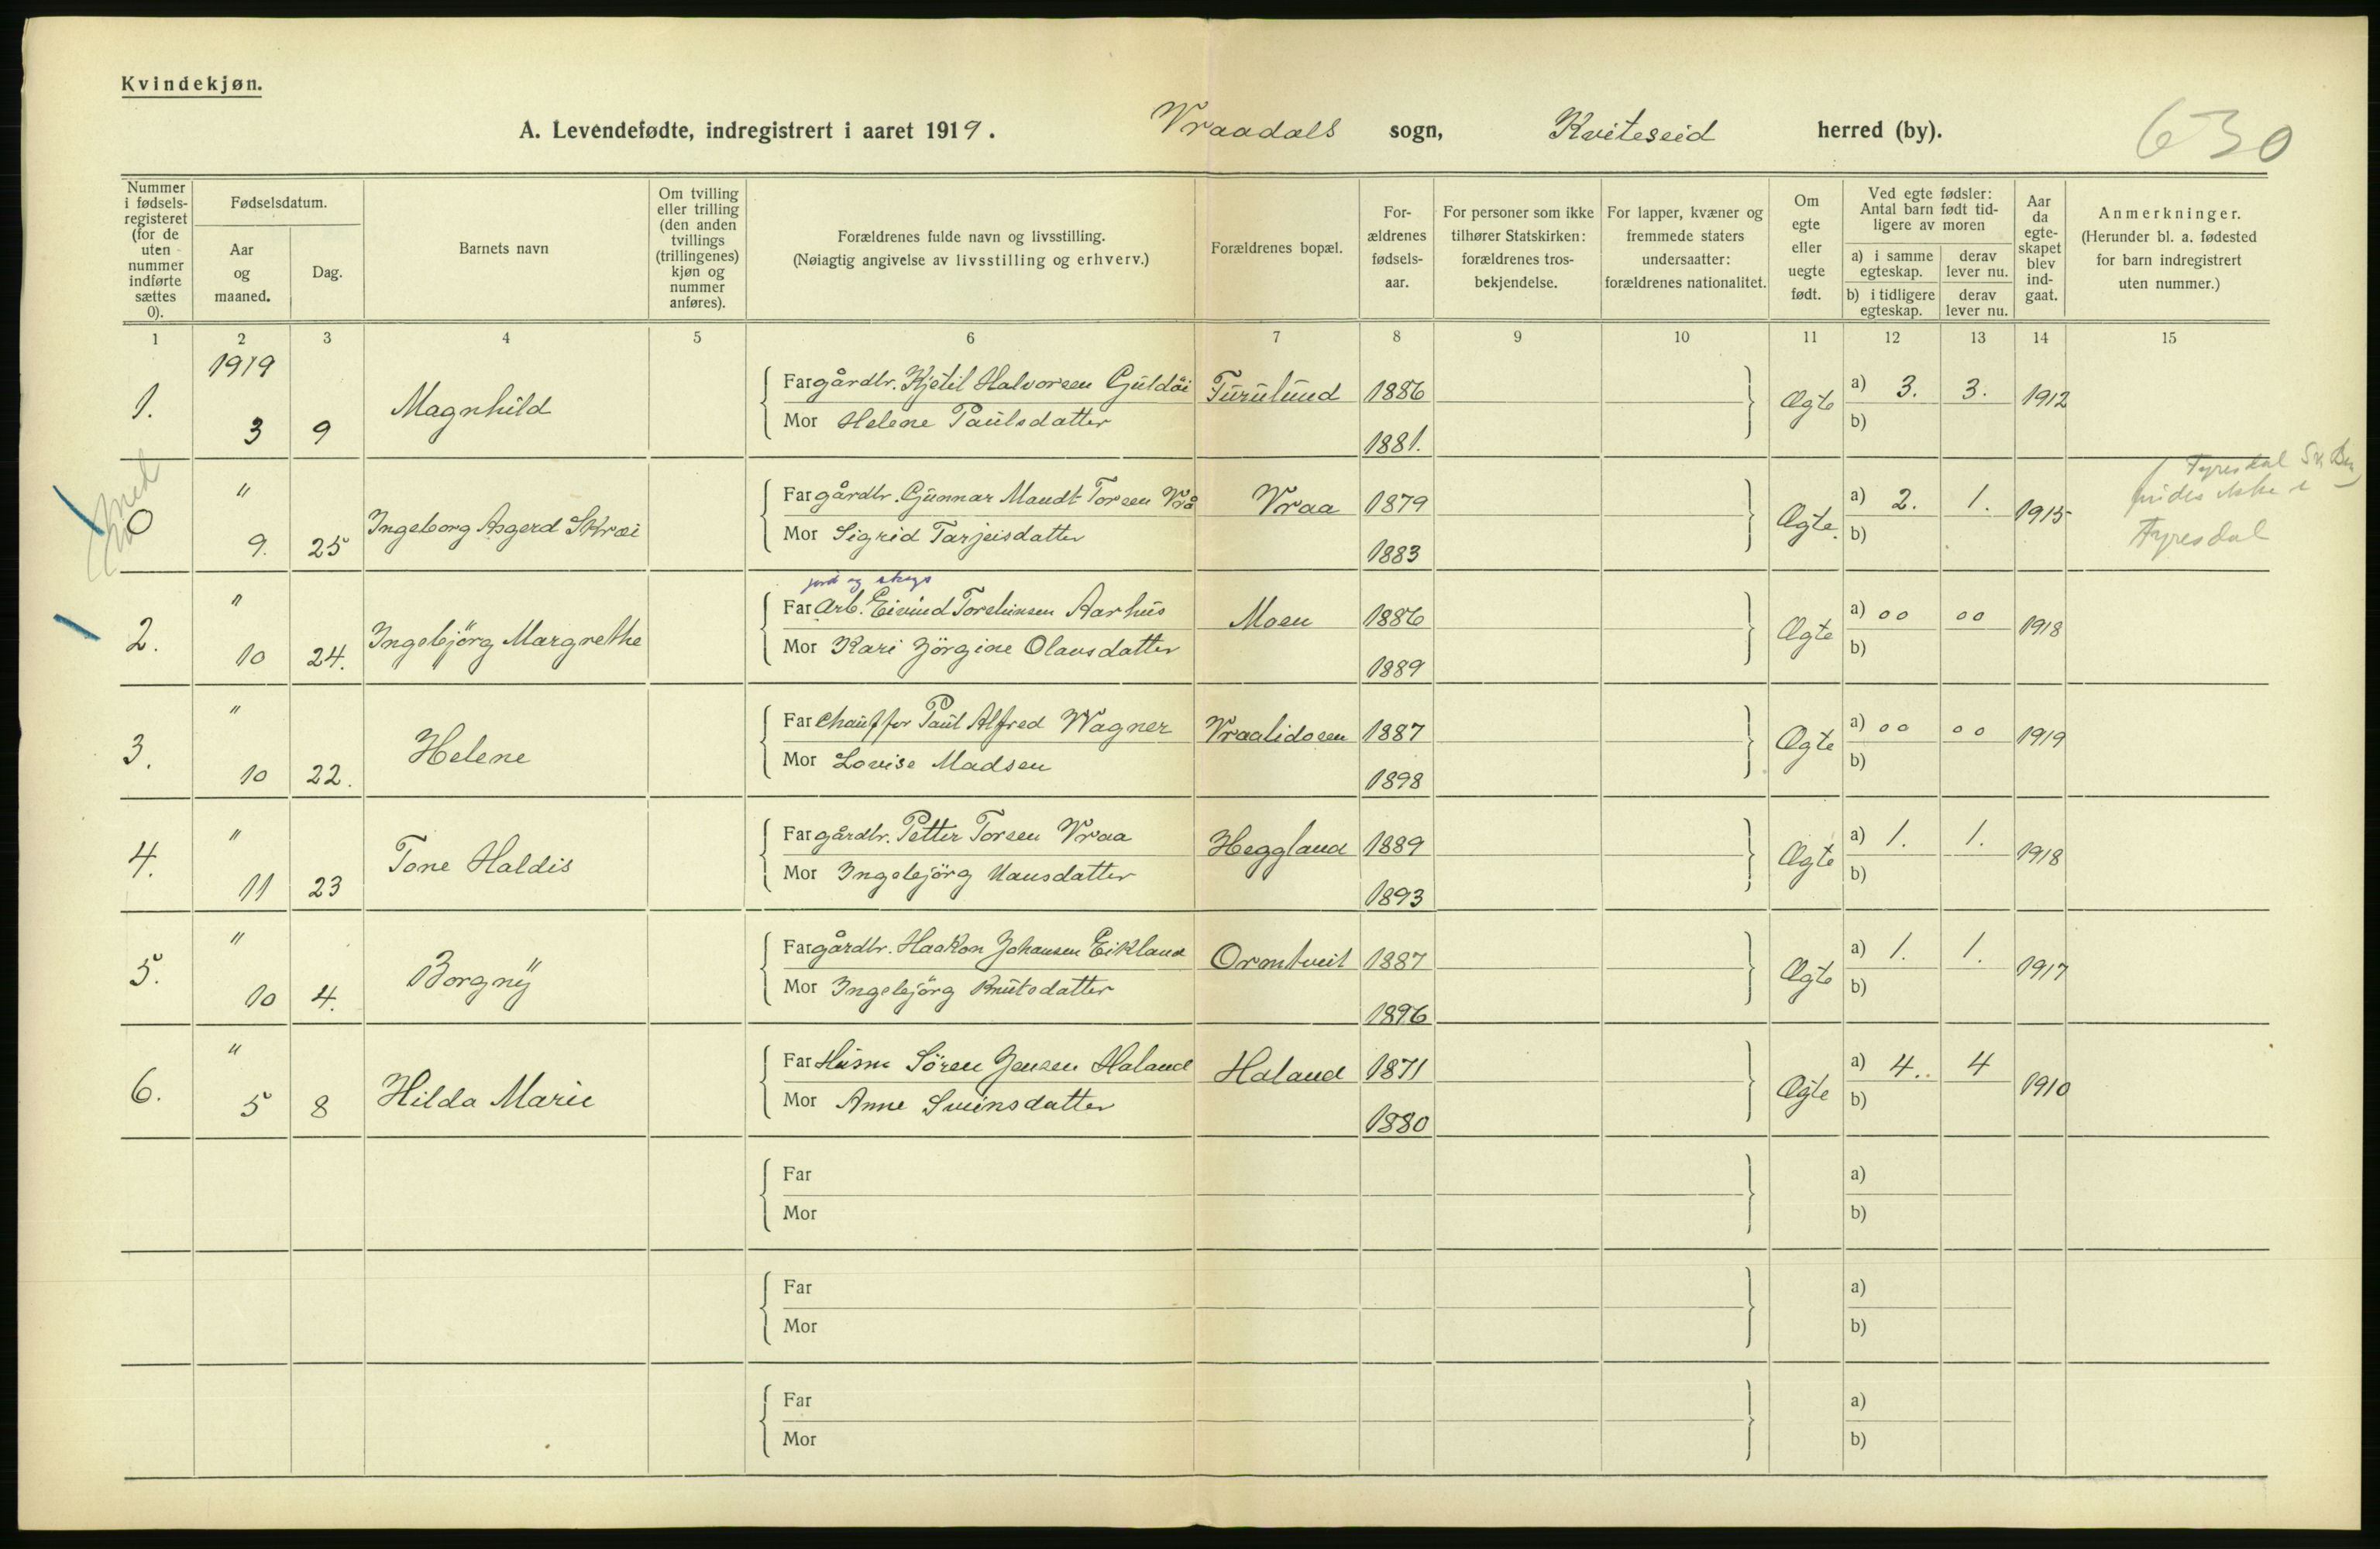 Kvindekjøn.
A. Levendefødte, indregistrert i aaret 1919. Vraadals sogn, Kviteseid herred (by).
630
Nummer i fødselsregisteret (for de uten nummer indførte sættes 0).
Fødselsdatum.
Aar og maaned.
Dag.
Barnets navn
Om tvilling eller trilling (den anden tvillings (trillingenes) kjøn og nummer anføres).
Forældrenes fulde navn og livsstilling.
(Nøiagtig angivelse av livsstilling og erhverv.)
Forældrenes bopæl.
Forældrenes fødselsaar.
For personer som ikke tilhører Statskirken: forældrenes trosbekjendelse.
For lapper, kvæner og fremmede staters undersaatter: forældrenes nationalitet.
Om egte eller uegte født.
Ved egte fødsler: Antal barn født tidligere av moren
a) i samme egteskap.
derav lever nu.
b) i tidligere egteskap.
derav lever nu.
Aar da egteskapet blev indgaat.
Anmerkninger.
(Herunder bl. a. fødested for barn indregistrert uten nummer.)
1 2 3 4 5 6 7 8 9 10 11 12 13 14 15
1919
1. 3 9 Magnhild
Far gårdbr. Kjetil Halvorsen Guldåi Furulund 1886
Mor Helene Paulsdatter 1881.
Ægte a) 3. 3. 1912
b)
med
0 " 9. 25 Ingeborg Asgerd Skræi
Far gårdbr. Gunnar Mandt Torsen Vrå Vraa 1879
Mor Sigrid Tarjeisdatter 1883
Ægte. a) 2. 1. 1915
b)
Tyresdal
findes ikke i
Tyresdal
jord og skogs
2. " 10 24. Ingebjörg Margrethe
Far Arb. Eivind Torsteinsen Aarhus Moen 1886
Mor Kari Jörgine Olausdatter 1889
Ægte a) oo oo 1918
b)
3. " 10 22. Helene
Far Chauffør Paul Alfred Wagner Vraalidosen 1887
Mor Lovise Madsen 1898
Ægte a) oo oo 1919
b)
4. " 11 23 Tone Haldis
Far gårdbr. Petter Torsen Vraa Heggland 1889
Mor Ingebjörg Hansdatter 1893
Ægte a) 1. 1. 1918
b)
5. " 10 4. Borgny
Far gårdbr. Haakon Johansen Eikland Ormtveit 1887
Mor Ingebjörg Knutsdatter 1896
Ægte a) 1. 1. 1917
b)
6. " 5 8 Hilda Marie
Far Husm Sören Jensen Haland Haland 1871
Mor Anne Sveinsdatter 1880
Ægte a) 4. 4 1910
b)
Far a)
Mor b)
Far a)
Mor b)
Far a)
Mor b)